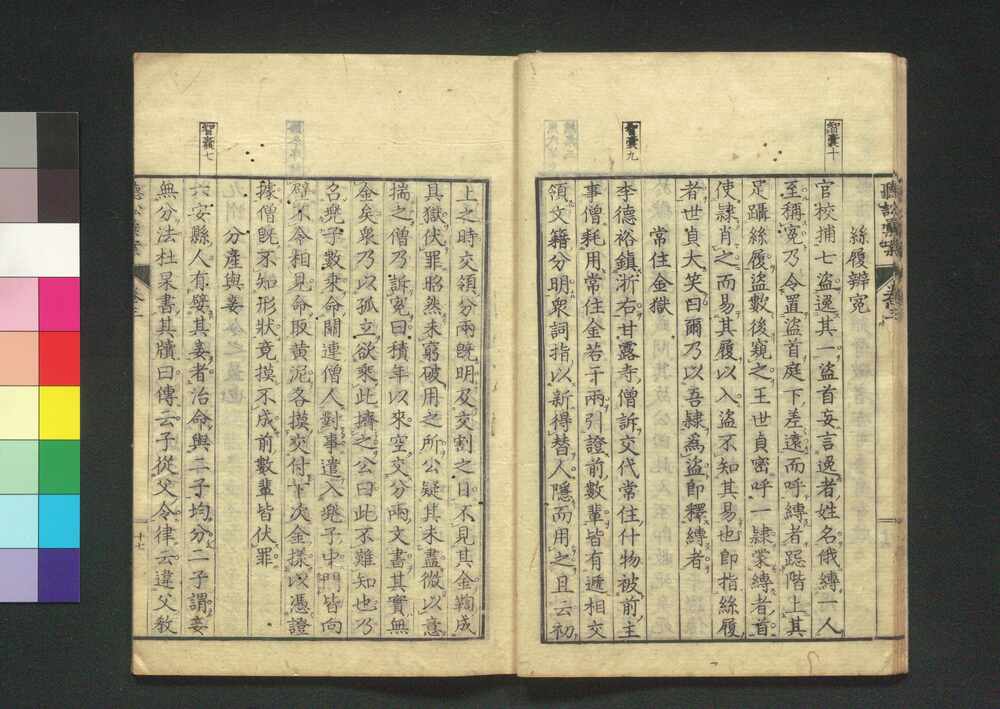 智囊十
絲履辯冤
官校捕七盜逸其一盜首妄言逸者姓名俄縛一人
至稱冤乃令置盜首庭下差遠而呼縛者跽階上其
足躡絲履盜數後窺之王世貞密呼一隷蒙縛者首
使隷肖之而易其履以入盜不知其易也即指絲履
者世貞大笑曰爾乃以吾隷為盜即釋縛者
常住金獄
智囊九
李德裕鎮浙右甘露寺僧訴交代常住什物被前主
事僧耗用常住金若干兩引證前數輩皆有遞相交
領文籍分明衆詞指以新得替人隱而用之且云初
上之時交領分兩既明及交割之日不見其金鞠成
具獄伏罪昭然未窮破用之所公疑其未盡微以意
揣之僧乃訴冤曰積年以來空交分兩文書其實無
金矣衆乃以孤立欲乘此擠之公曰此不難知也乃
召兜子數乘命關連僧人對事遣入兜子中門皆向
壁不令相見命取黃泥各摸交付下次金樣以憑證
據僧既不知形狀竟摸不成前數輩皆伏罪
分產與妾
智囊七
六安縣人有嬖其妾者治命與二子均分二子謂妾
無分法杜杲書其牘曰傳云子從父令律云違父敎
十七